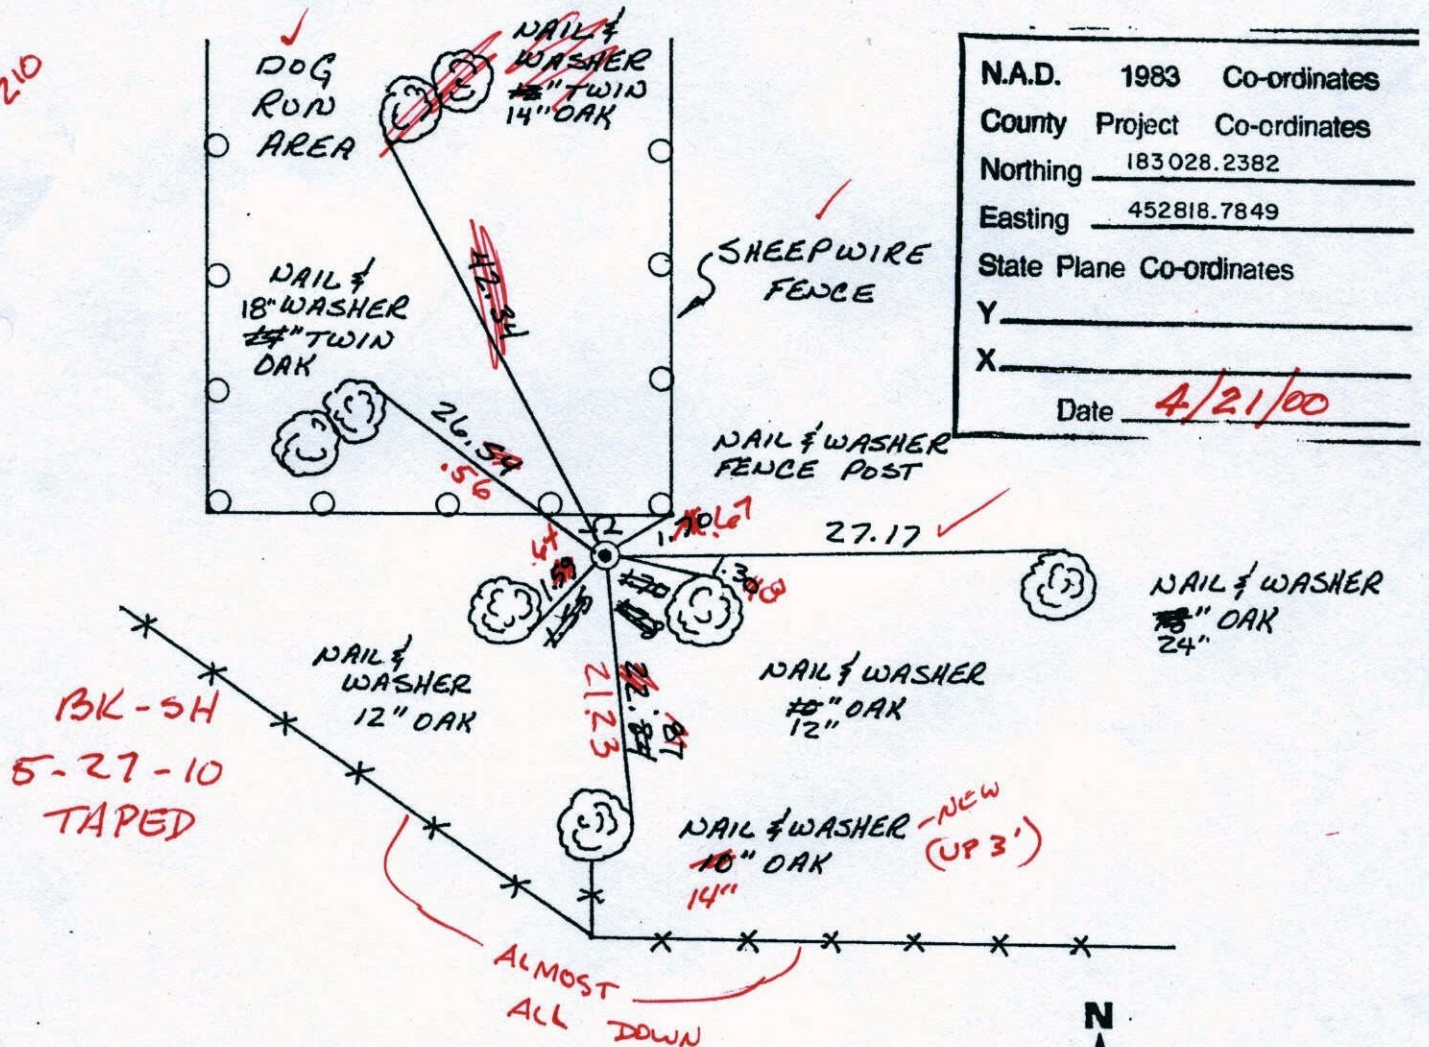 210
DOG
RUN
AREA
NAIL &
WASHER
TWIN
14" OAK
N.A.D. 1983 Co-ordinates
County Project Co-ordinates
Northing 183028.2382
Easting 452818.7849
State Plane Co-ordinates
Y
X
Date 4/21/00
SHEEPWIRE
FENCE
42.34
NAIL &
18" WASHER
" TWIN
OAK
26.59
.56
NAIL & WASHER
FENCE POST
1.70
.67
27.17
NAIL & WASHER
" OAK
24"
1.59
.30
NAIL &
WASHER
12" OAK
21.23
22.
.87
NAIL & WASHER
10" OAK
12"
BK-SH
5-27-10
TAPED
NAIL & WASHER -NEW
10" OAK (UP 3')
14"
ALMOST
ALL DOWN
N